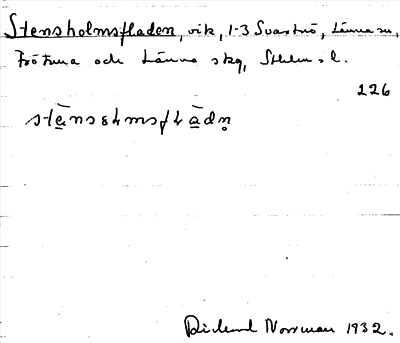 Stensholmsfladen, vik, 1-3 Svartnö, Länna sn,
Frötuna och Länna skg, Sthlms l.
226
stā̲nsɞɫmsfɫā̲dn̥
Rickard Norrman 1932.